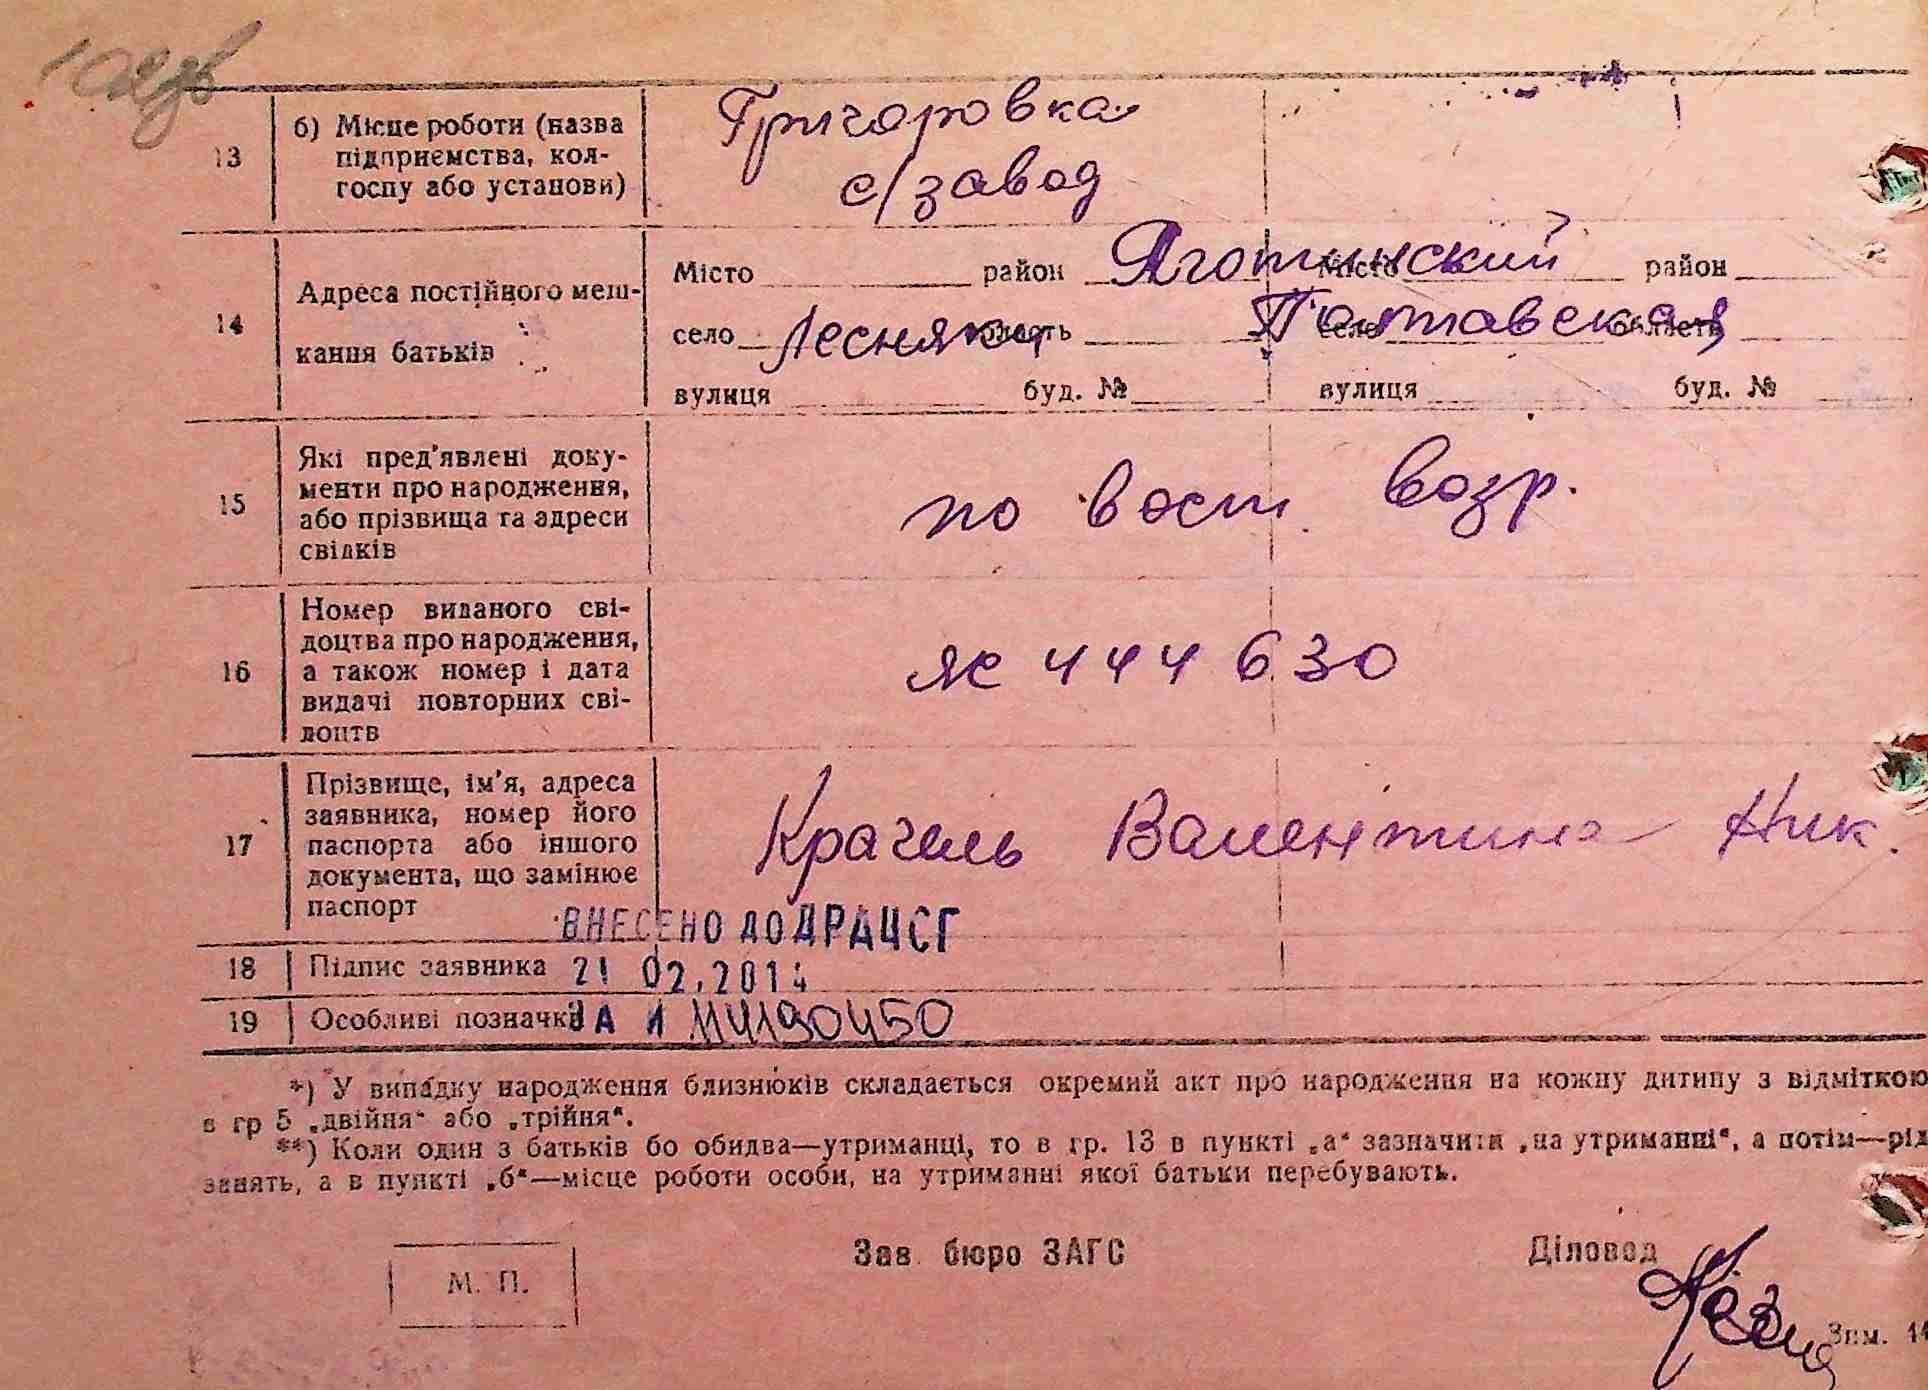 13
б) Місце роботи (назва
підприємства, кол-
госпу або установи)
Григоровка
с/завод
14
Адреса постійного меш-
кання батьків
Місто район Яготинский Місто район
село Лесняки область Полтавская село область
вулиця буд. № вулиця буд. №
15
Які пред'явлені доку-
менти про народження,
або прізвища та адреси
свідків
по вост. возр.
16
Номер виданого сві-
доцтва про народження,
а також номер і дата
видачі повторних сві-
доцтв
яс 444630
17
Прізвище, ім'я, адреса
заявника, номер його
паспорта або іншого
документа, що замінює
паспорт
Крачель Валентина Ник.
ВНЕСЕНО ДО ДРАЦСГ
18 Підпис заявника 21 02.201
19 Особливі позначки ЗА № 114190450
*) У випадку народження близнюків складається окремий акт про народження на кожну дитину з відміткою
в гр 5 „двійня“ або „трійня“.
**) Коли один з батьків бо обидва—утриманці, то в гр. 13 в пункті „а“ зазначити „на утриманні“, а потім—рід
занять, а в пункті „б“—місце роботи особи, на утриманні якої батьки перебувають.
М. П.
Зав. бюро ЗАГС
Діловод
Зам. 11